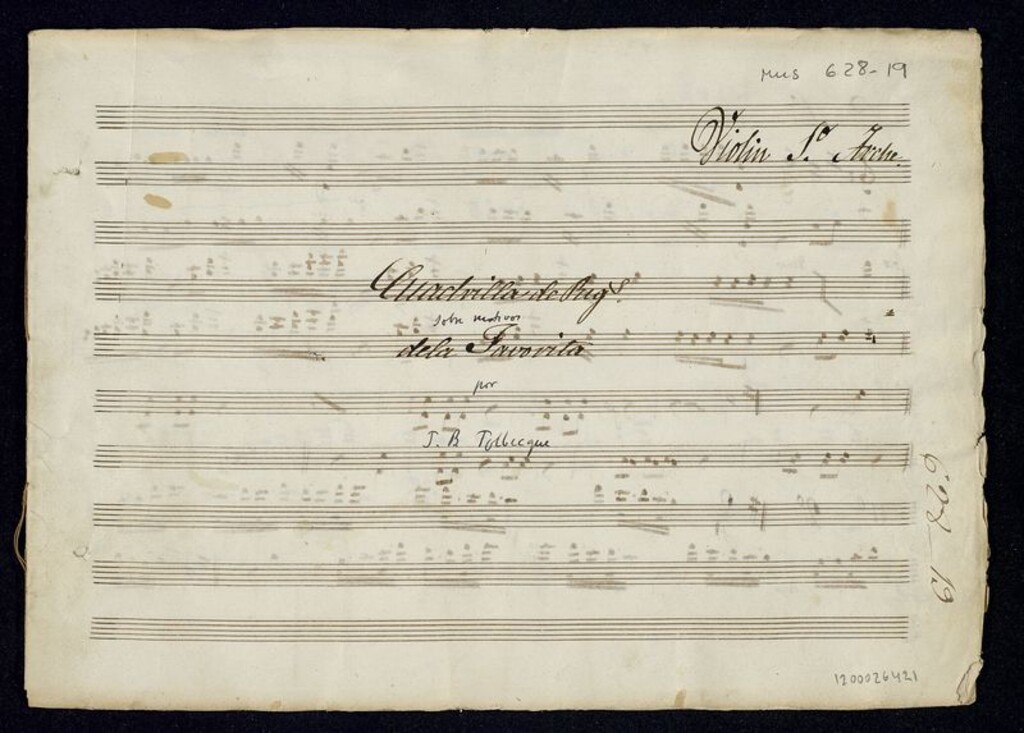 Mus 628-19
Violin 1º Arche.
Cuadrilla de Rigs.
sobre motivos
dela Favorita
por
J. B Tolbecque
628-19
1200026421